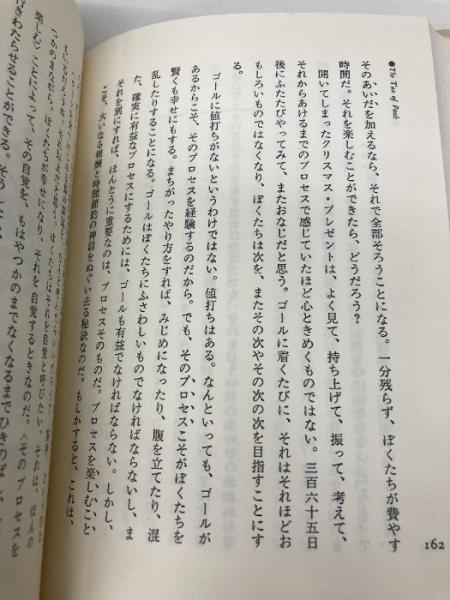 ●The Tao of Pooh
そのあいだを加えるなら、それで全部そろうことになる。一分残らず、ぼくたちが費やす
時間だ。それを楽しむことができたら、どうだろう？
開いてしまったクリスマス・プレゼントは、よく見て、持ち上げて、振って、考えて、
それからあけるまでのプロセスで感じていたほど心ときめくものではない。三百六十五日
後にふたたびやってみて、またおなじだと思う。ゴールに着くたびに、それはそれほどお
もしろいものではなくなり、ぼくたちは次を、またその次やその次の次を目指すことにす
る。
ゴールに値打ちがないというわけではない。値打ちはある。なんといっても、ゴールが
あるからこそ、そのプロセスを経験するのだから。でも、そのプロセスこそがぼくたちを
賢くも幸せにもする。まちがったやり方をすれば、みじめになったり、腹を立てたり、混
乱したりすることになる。ゴールはぼくたちにふさわしいものでなければならないし、ま
た、確実に有益なプロセスにするためには、ゴールも有益でなければならない。しかし、
それを別にすれば、ほんとうに重要なのは、プロセスそのものだ。プロセスを楽しむこと
こそ、大いなる報酬と時間節約の神話をぬぐい去る秘訣なのだ。もしかすると、これは、
つかのまだが、ぼくたちが幸せになり、それを自覚するときなのだ。〈そのプロセスを
楽しむ〉ことによって、その自覚を、もはやつかのまでなくなるまでひきのばし、
行きわたらせることができる。そうしたら、
162